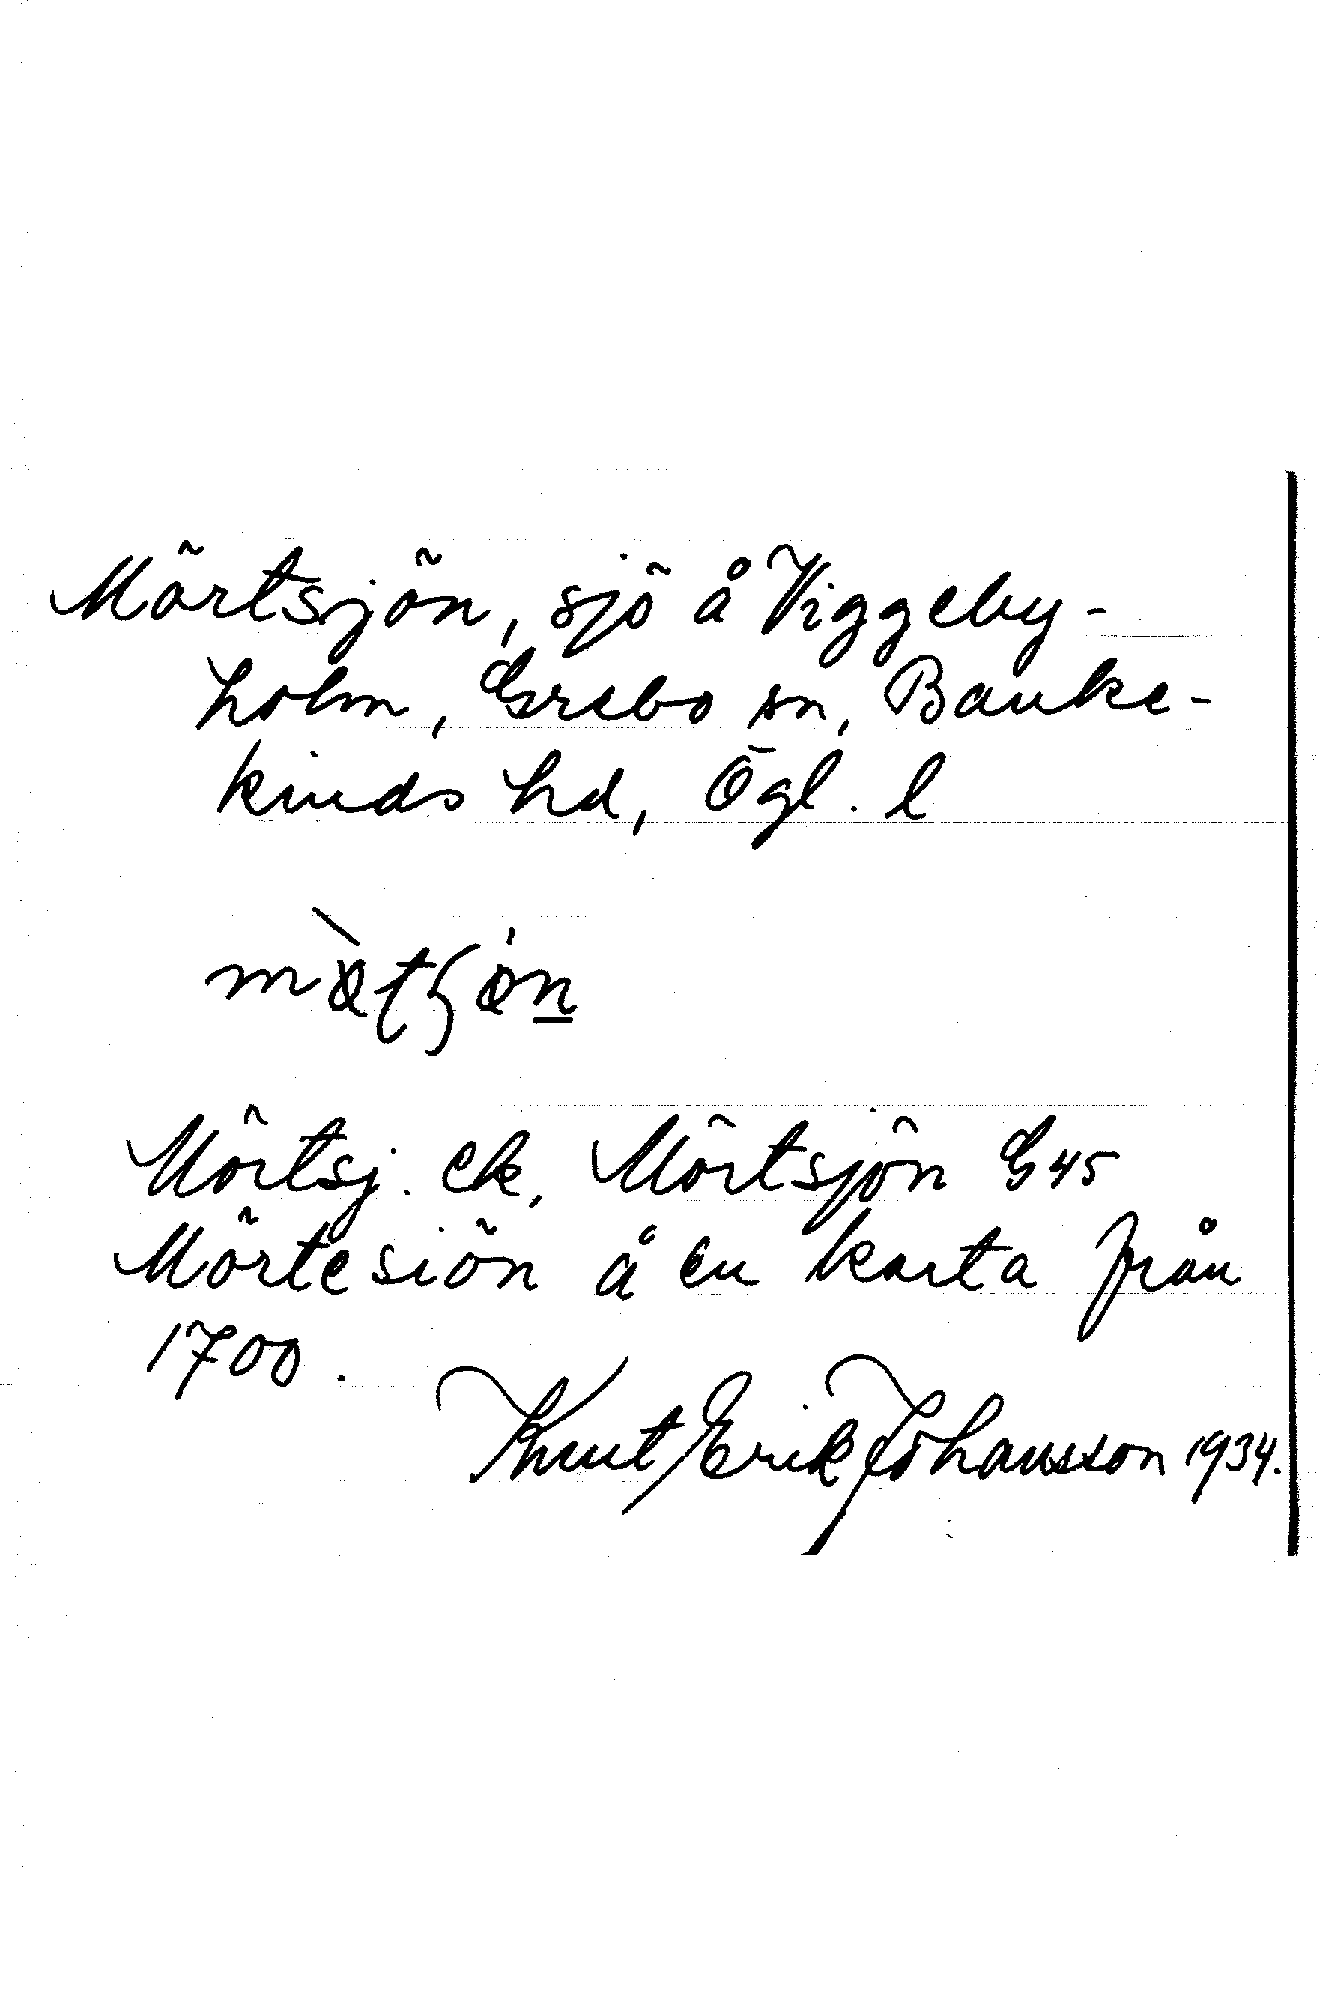 Mörtsjön, sjö å Viggeby-
holm, Grebo sn, Banke-
kinds hd, Ögl. l
Mörtsj. ek, Mörtsjön G45
Mörtesiön å en karta från
1700.
Knut Erik Johansson 1934.